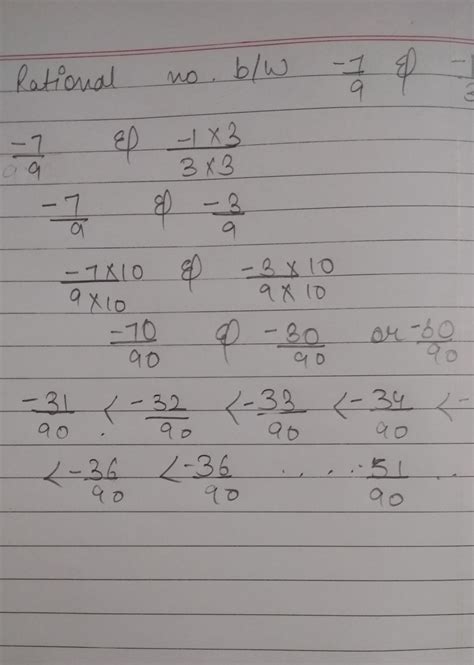 Rational no. b/w -7/9 & -1/3
-7/9 & -1×3/3×3
-7/9 & -3/9
-7×10/9×10 & -3×10/9×10
-70/90 & -30/90 or -60/90
-31/90 < -32/90 < -33/90 < -34/90 < -
< -36/90 < -36/90 ..... 51/90 ..